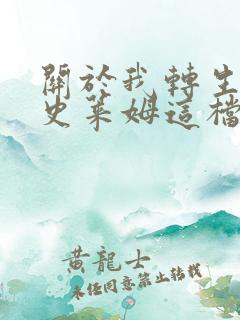 關於我轉生
史萊姆這檔
黃龍士
未經同意禁止轉載